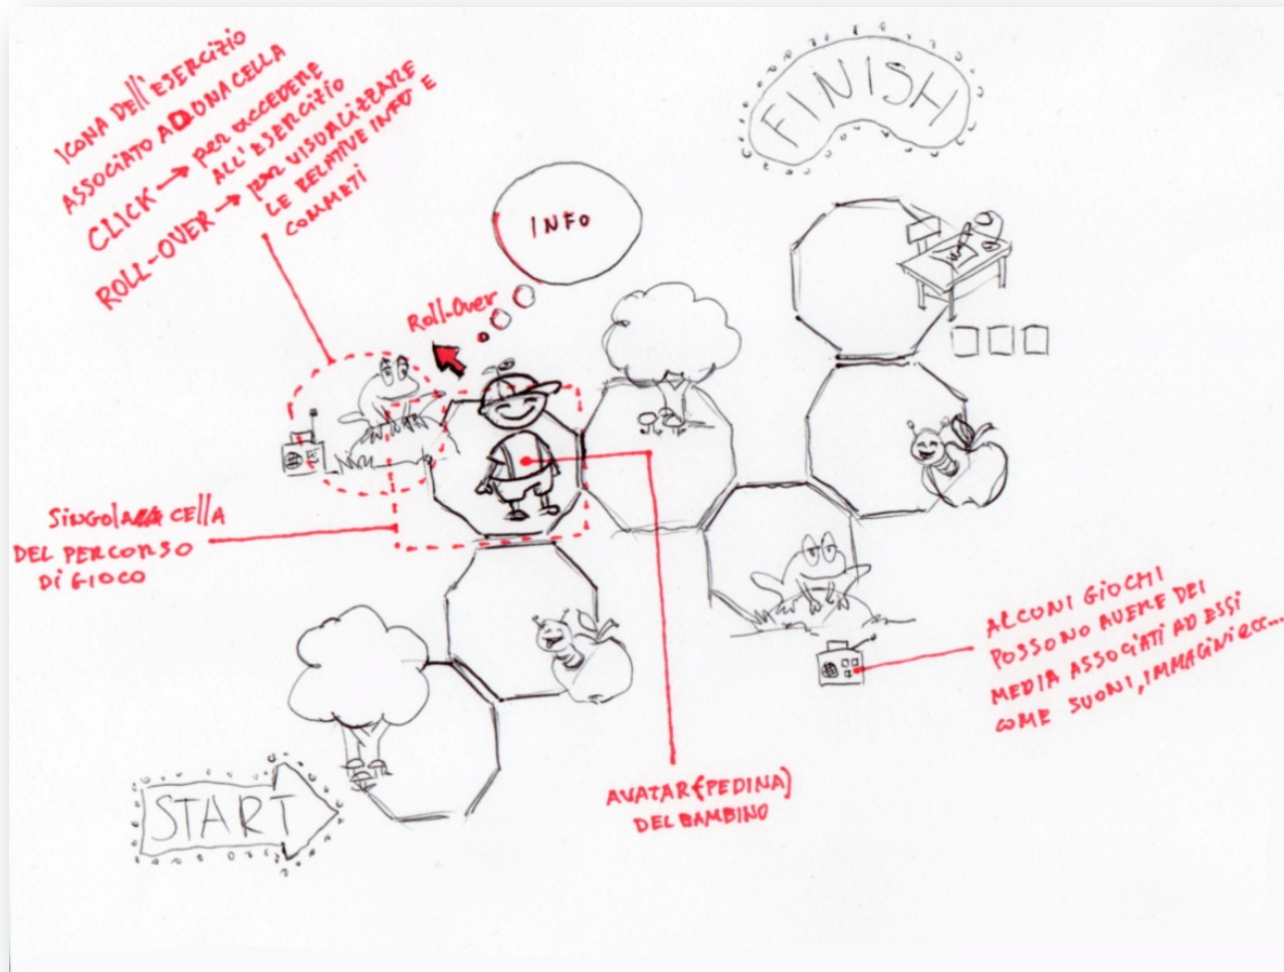 ICONA DELL'ESERCIZIO
ASSOCIATO AD UNA CELLA
CLICK → per ACCEDERE
ALL'ESERCIZIO
ROLL-OVER → per VISUALIZZARE
LE RELATIVE INFO E
COMMETI
FINISH
INFO
Roll-Over
SINGOLA CELLA
DEL PERCORSO
DI GIOCO
ALCUNI GIOCHI
POSSONO AVERE DEI
MEDIA ASSOCIATI AD ESSI
COME SUONI, IMMAGINI ecc...
AVATAR (PEDINA)
DEL BAMBINO
START